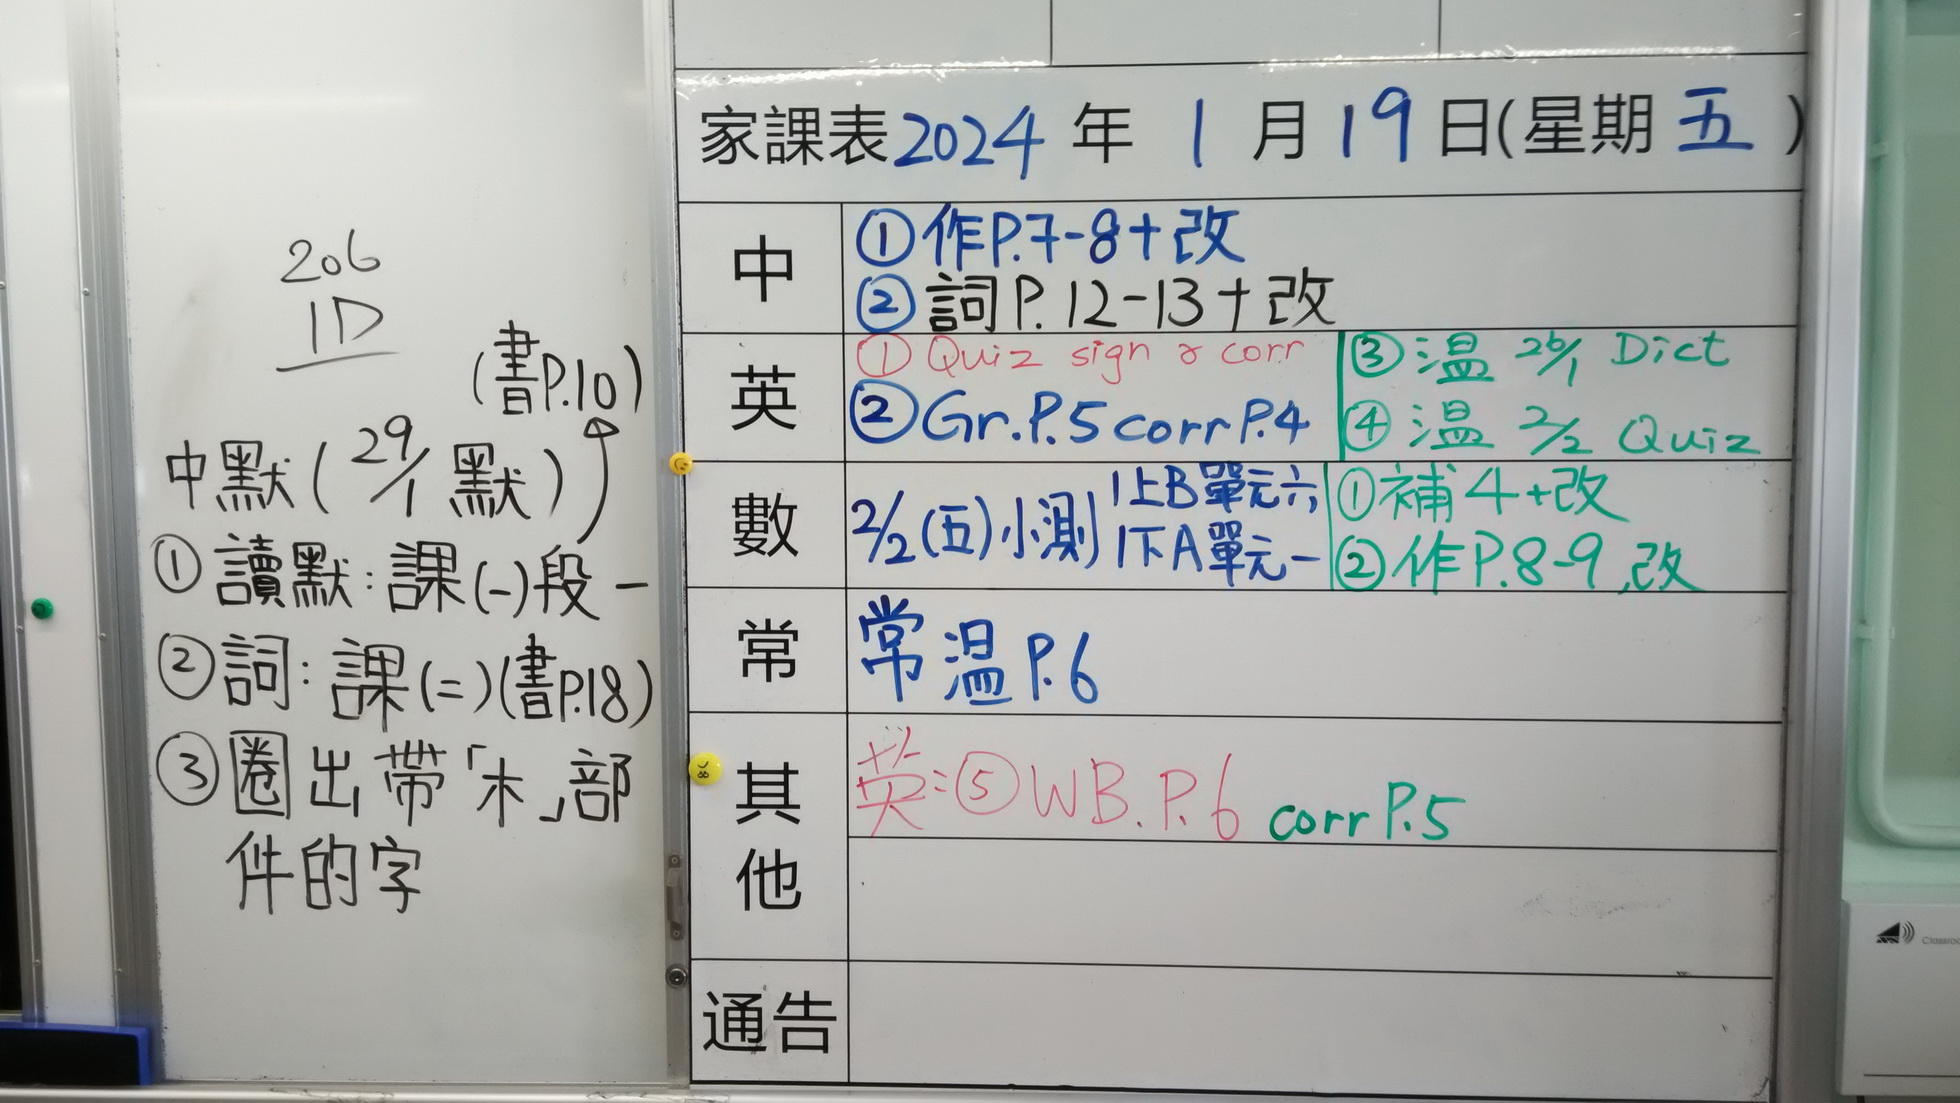 206
1D
(書P.10)
中默(29/1默)
①讀默:課(一)段一
②詞:課(二)(書P.18)
③圈出帶「木」部
件的字
家課表2024年1月19日(星期五)
中
①作P.7-8+改
②詞P.12-13+改
英
①Quiz sign & corr
②Gr.P.5 corr P.4
③温 26/1 Dict
④温 2/2 Quiz
數
2/2(五)小測
1上B單元六
1下A單元一
①補4+改
②作P.8-9,改
常
常温P.6
其他
英:⑤WB.P.6 corr P.5
通告